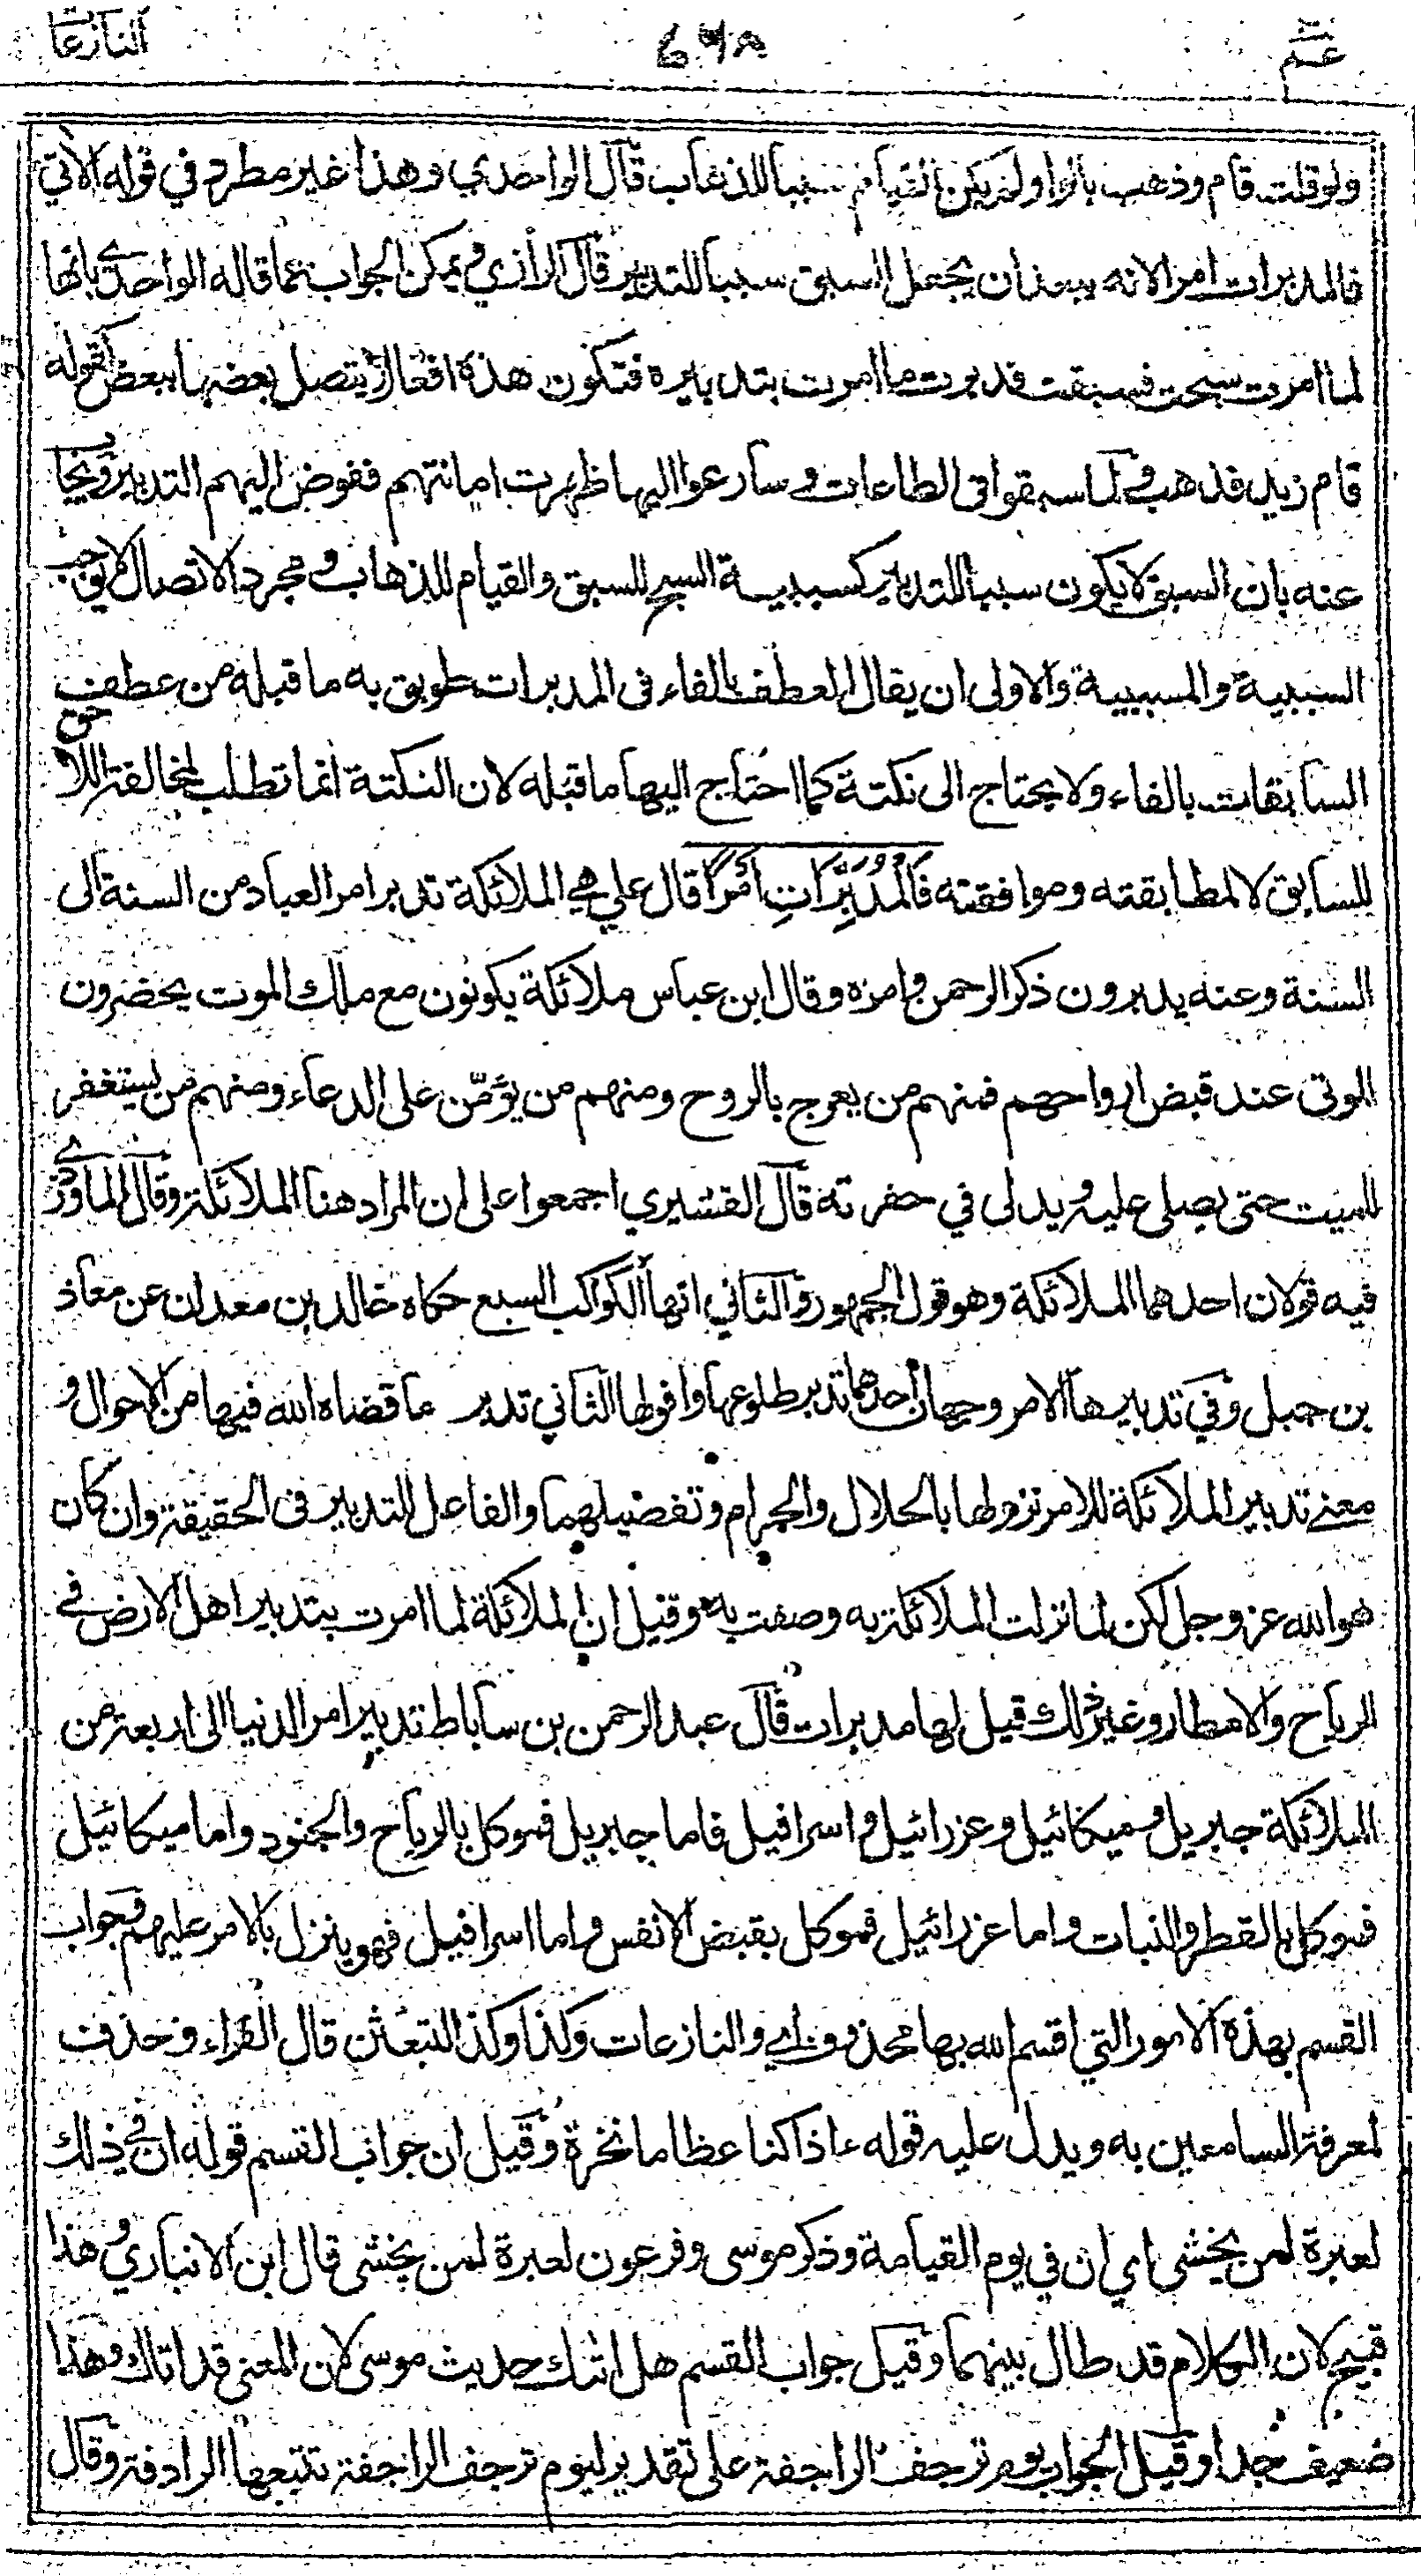 عم ٦٦٨ النازعات
ولو قلت قام وذهب بالواو لم يكن القيام سببا للذهاب قال الواحدي وهذا غير مطرد في قوله الآتي
فالمدبرات امرا لانه يبعد ان يجعل السبق سببا للتدبير قال الرازي ويمكن الجواب عما قاله الواحدي بانها
لما امرت سبحت فسبقت فدبرت ما امرت بتدبيره فتكون هذه افعالا يتصل بعضها ببعض كقوله
قام زيد فذهب ولما سبقوا في الطاعات وسارعوا اليها ظهرت امانتهم ففوض اليهم التدبير ويجاب
عنه بان السبق لا يكون سببا للتدبير كسببية السبح للسبق والقيام للذهاب ومجرد الاتصال لا يوجب
السببية والمسببية والاولى ان يقال العطف بالفاء في المدبرات طوبق به ما قبله من عطف
السابقات بالفاء ولا يحتاج الى نكتة كما احتاج اليها ما قبله لان النكتة انما تطلب لمخالفة اللاحق
للسابق لا لمطابقته وموافقته فَالْمُدَبِّرَاتِ أَمْرًا قال علي هي الملائكة تدبر امر العباد من السنة الى
السنة وعنه يدبرون ذكر الرحمن وامره وقال ابن عباس ملائكة يكونون مع ملك الموت يحضرون
الموتى عند قبض ارواحهم فمنهم من يعرج بالروح ومنهم من يؤمّن على الدعاء ومنهم من يستغفر
للميت حتى يصلى عليه ويدلى في حفرته قال القشيري اجمعوا على ان المراد هنا الملائكة وقال الماوردي
فيه قولان احدهما الملائكة وهو قول الجمهور والثاني انها الكواكب السبع حكاه خالد بن معدان عن معاذ
بن جبل وفي تدبيرها الامر وجهان احدهما تدبر طلوعها وافولها الثاني تدبر ما قضاه الله فيها من الاحوال و
معنى تدبير الملائكة للامر نزولها بالحلال والحرام وتفصيلهما والفاعل للتدبير في الحقيقة وان كان
هو الله عز وجل لكن لما نزلت الملائكة به وصفت به وقيل ان الملائكة لما امرت بتدبير اهل الارض في
الرياح والامطار وغير ذلك قيل لها مدبرات قال عبد الرحمن بن ساباط تدبير امر الدنيا الى اربعة من
الملائكة جبريل وميكائيل وعزرائيل واسرافيل فاما جبريل فموكل بالرياح والجنود واما ميكائيل
فموكل بالقطر والنبات واما عزرائيل فموكل بقبض الانفس واما اسرافيل فهو ينزل بالامر عليهم وجواب
القسم بهذه الامور التي اقسم الله بها محذوف اي والنازعات وكذا وكذا لتبعثن قال الفراء وحذف
لمعرفة السامعين به ويدل عليه قوله ءاذا كنا عظاما نخرة وقيل ان جواب القسم قوله ان في ذلك
لعبرة لمن يخشى اي ان في يوم القيامة وذكر موسى وفرعون لعبرة لمن يخشى قال ابن الانباري وهذا
قبيح لان الكلام قد طال بينهما وقيل جواب القسم هل اتىك حديث موسى لان المعنى قد اتاك وهذا
ضعيف جدا وقيل الجواب يوم ترجف الراجفة على تقدير ليوم ترجف الراجفة تتبعها الرادفة وقال